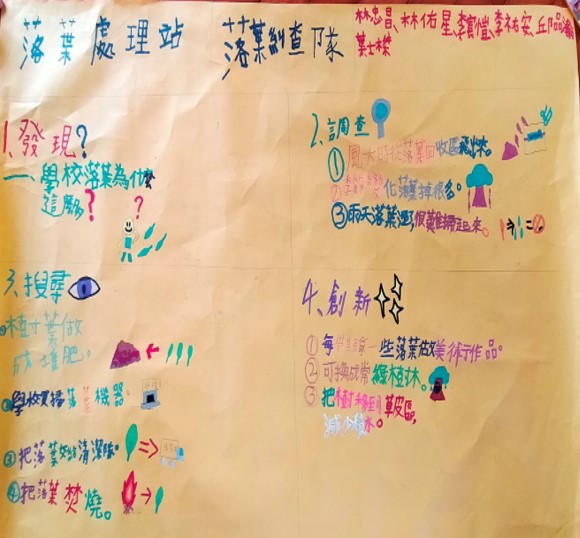 落葉處理站 落葉糾查隊
林忠昌、林佑星、李富愷、李祐安、丘品濤、
葉士桀
1、發現?
一、學校落葉為什麼
這麼多?
?
2、調查
① 風大時從落葉回收區飛出來。
② 季節變化落葉掉很多。
③雨天落葉溼,很難掃起來。
3、搜尋
①樹葉做
成堆肥。
②學校買掃落葉機器。
③把落葉交給清潔隊。
④把落葉焚燒。
4、創新
① 每個班拿一些落葉做美術作品。
② 可換成常綠植木。
③ 把樹移到草皮區,
減少積水。